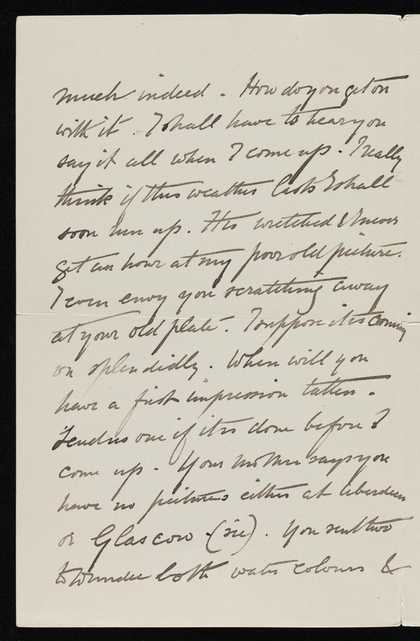 much indeed. How do you get on
with it. I shall have to hear you
say it all when I come up. I really
think if this weather lasts I shall
soon run up. Its wretched & I never
get an hour at my poor old picture.
I even envy you scratching away
at your old plate. I suppose it is coming
on splendidly. When will you
have a first impression taken.
Send us one if it is done before I
come up. Your mother says you
have no pictures either at Aberdeen
or Glascow (sic). You sent two
to Dundee both water colours &